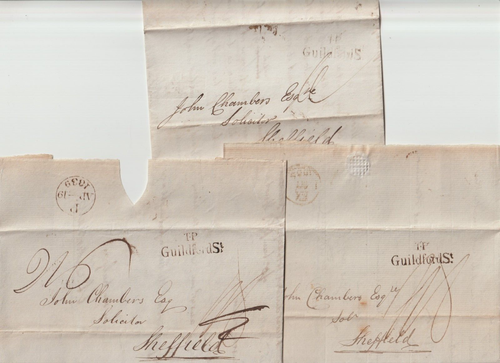 TP
Guildford St
John Chambers Esqre
Solicitor
Sheffield
TP
Guildford St
John Chambers Esq
Solicitor
Sheffield
TP
Guildford St
John Chambers Esqre
Solr
Sheffield